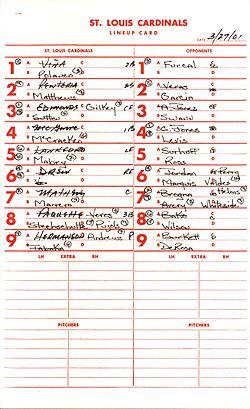 ST. LOUIS CARDINALS
LINEUP CARD
DATE 3/27/01
ST. LOUIS CARDINALS
OPPONENTS
1 A Viña C 2B
B Polanco D
2 A Rentería C
B Matthews D
3 A Edmonds C CF
B Sutton D
4 A McGwire C
B McCracken D
5 A Lankford C LF
B Mabry D
6 A Drew C RF
B D
7 A Matheny C C
B Marrero D
8 A Paquette Veres 3B
B Stechschulte Pujols
9 A Hermanson Andrews P
B
1 A Furcal C 6
B D
2 A Veras C
B Garcia D
3 A A. Jones C
B Swann D
4 A C. Jones C
B Lewis D
5 A Surhoff C
B Ross D
6 A Jordan Perry
B Marquis Valdes
7 A Brogna Helms
B Avery Whiteside
8 A Bako C
B Wilson D
9 A Burkett C
B DeRosa D
LH EXTRA RH
LH EXTRA RH
PITCHERS
PITCHERS